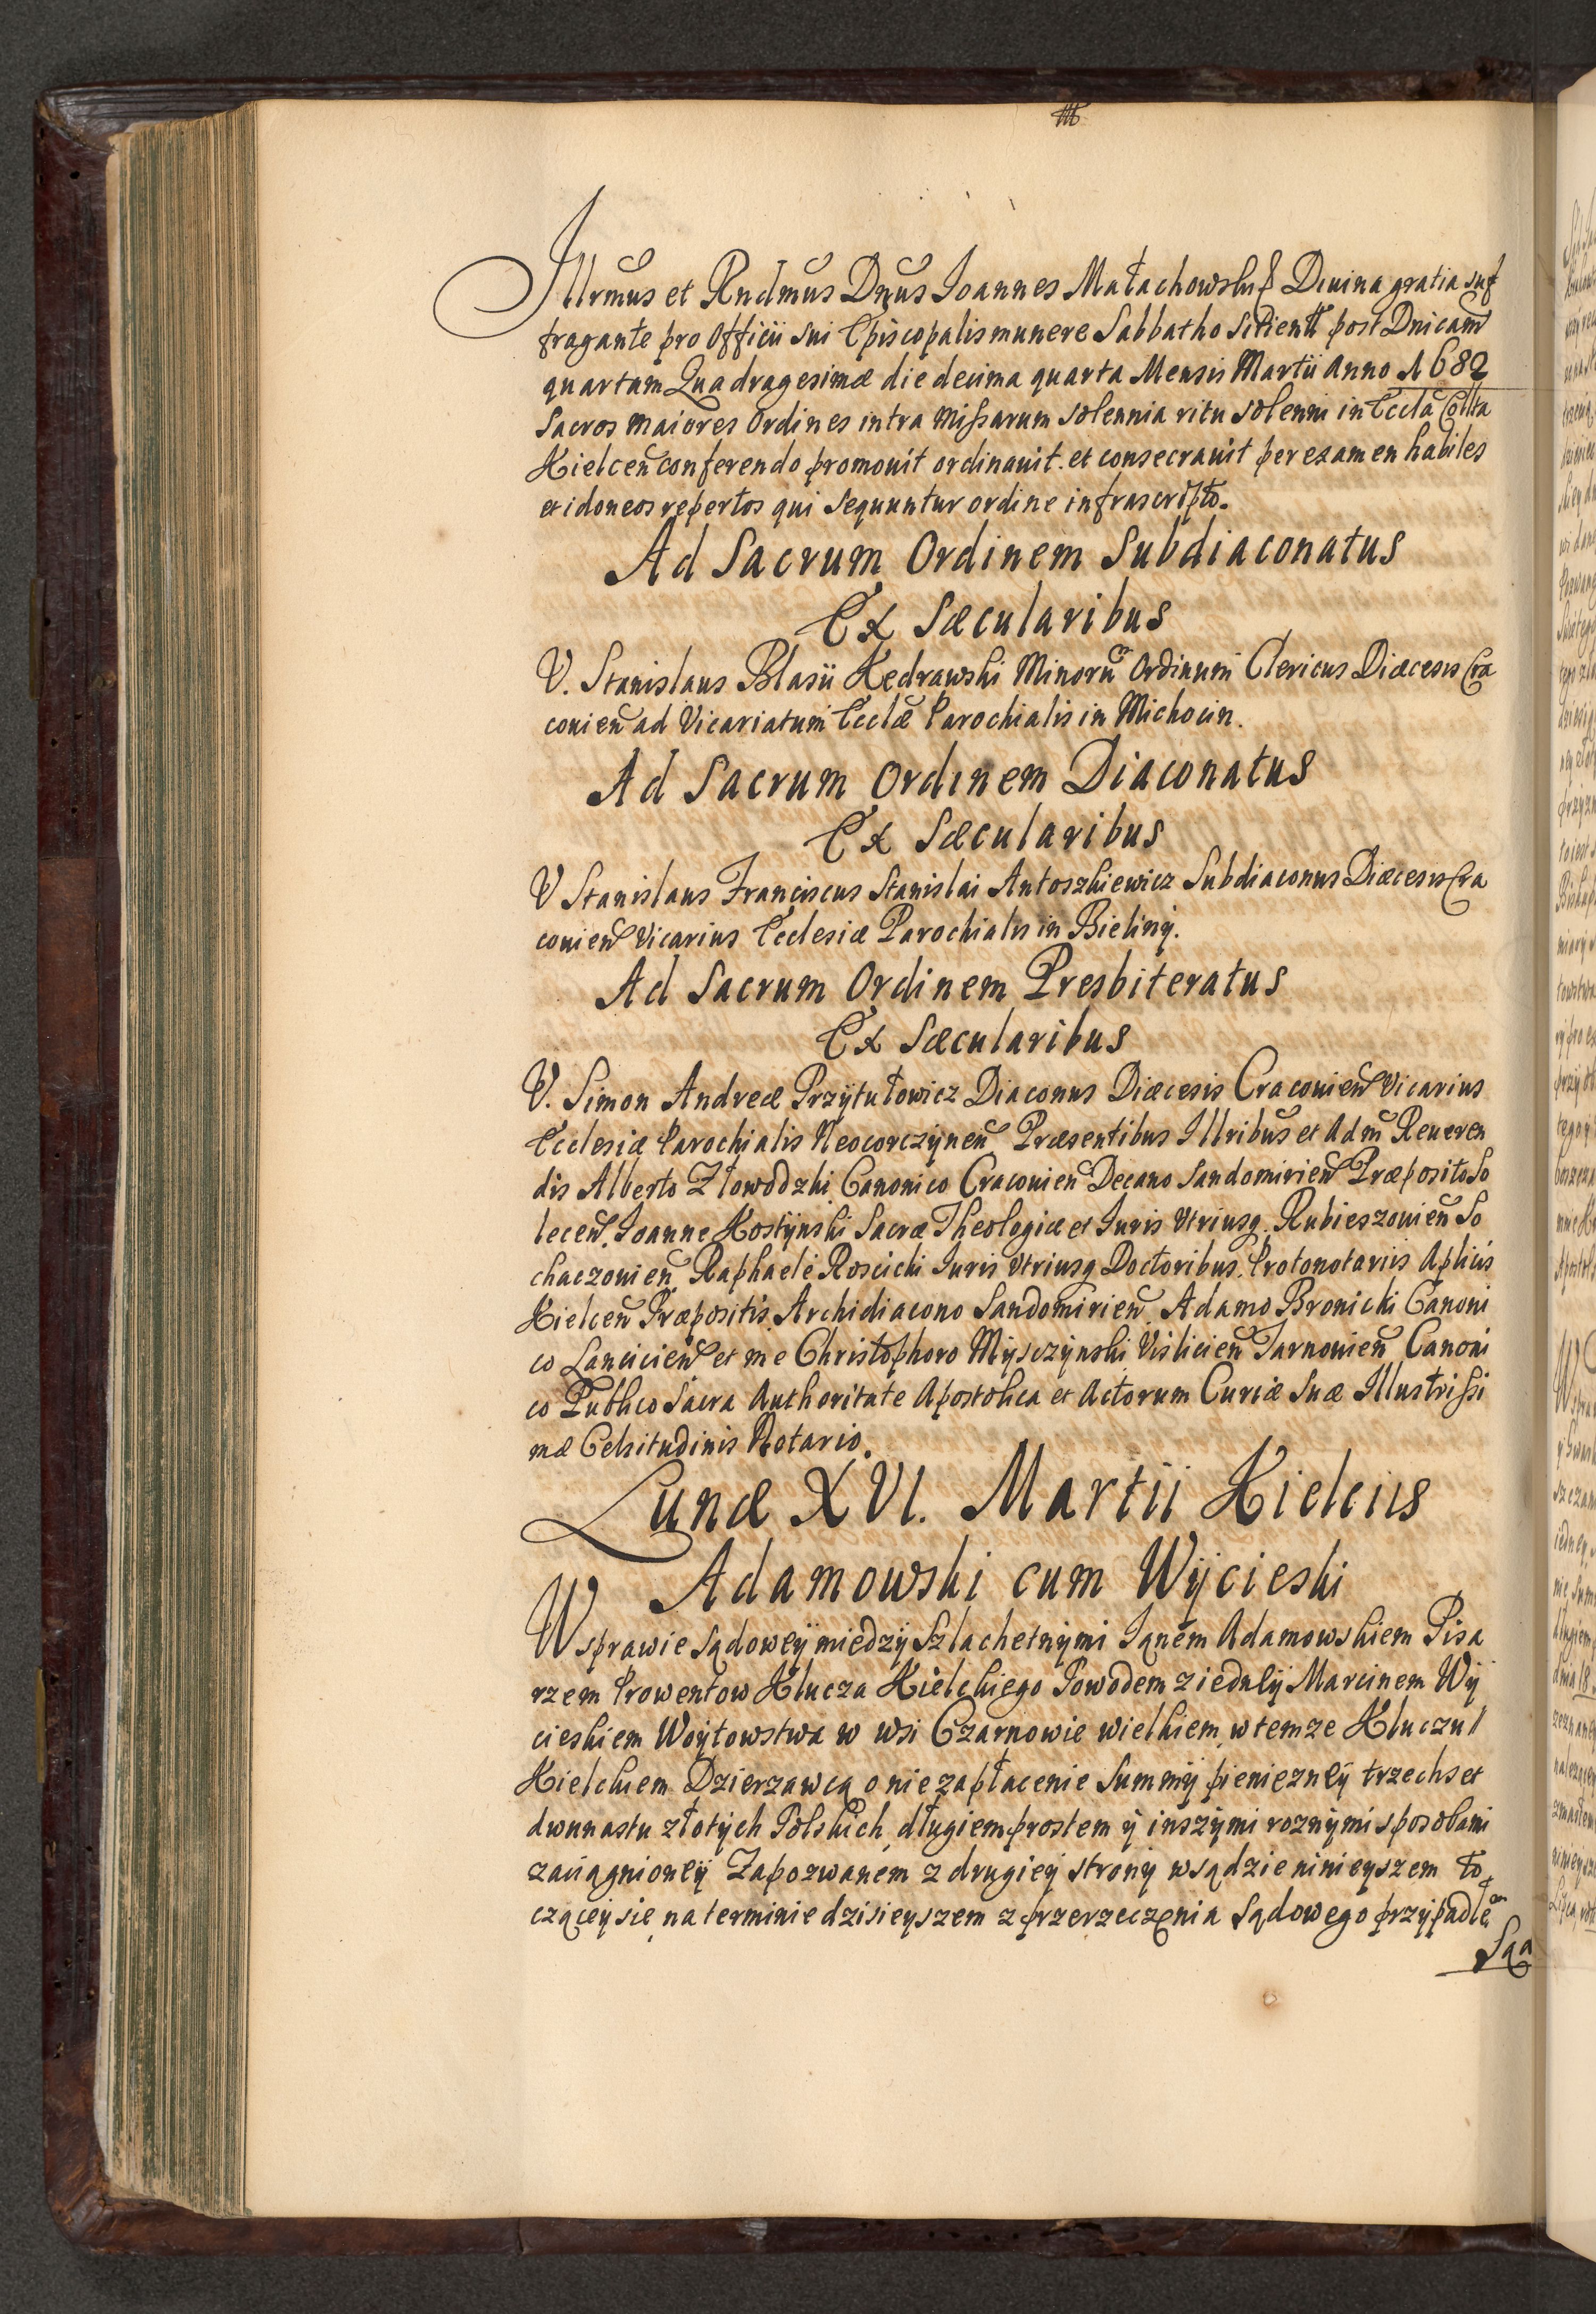 Illrmus et Rndmus Dnus Joannes Małachowski Diuina gratia suf
fragante pro Officii sui Episcopalis munere Sabbatho Sitientes post Dnicam
quartam Quadragesimæ die decima quarta Mensis Martii Anno 1682
Sacros maiores Ordines intra Missarum solennia ritu solenni in Eccla Collta
Kielcen conferendo promouit ordinauit. et consecrauit per examen habiles
et idoneos repertos qui sequuntur ordine infrascripto.
Ad Sacrum Ordinem Subdiaconatus
Ex Sæcularibus
V. Stanislaus Blasii Kędrawski Minoru Ordinum Clericus Diæcesis Cra
couien ad Vicariatum Ecclæ Parochialis in Michocin.
Ad Sacrum Ordinem Diaconatus
Ex Sæcularibus
V Stanislaus Franciscus Stanislai Antoszkiewicz Subdiaconus Diæcesis Cra
couien Vicarius Ecclesiæ Parochialis in Bieliny.
Ad Sacrum Ordinem Presbiteratus
Ex Sæcularibus
V. Simon Andreæ Przÿtułowicz Diaconus Diæcesis Cracouien Vicarius
Ecclesiæ Parochialis Neocorczÿnen Præsentibus Illribus et Adm Reueren
dis Alberto Złowodzki Canonico Cracouien Decano Sandomirien Præposito So
lecen. Joanne Kostÿnski Sacræ Theologiæ et Juris Vtriusq. Rubieszouien So
chaczouien Raphaele Roscicki Juris Vtriusq Doctoribus. Protonotariis Aplicis
Kielcen Præpositis. Archidiacono Sandomirien. Adamo Bronicki Canoni
co Lancicien et me Christophoro Mÿsczÿnski Vislicien Tarnouien Canoni
co Publico Sacra Authoritate Apostolica et Actorum Curiæ Suæ Illustrissi
mæ Celsitudinis Notario.
Lunæ XVI. Martii Kielciis
Adamowski cum Wÿcieski
W sprawie sądoweÿ miedzÿ Szlachetnÿmi Janem Adamowskiem Pisa
rzem Prowentow Klucza Kielckiego Powodem z iednÿ Marcinem Wÿ
cieskiem Woÿtowstwa w wsi Czarnowie wielkiem, w temze Kluczu
Kielckiem Dzierzawcą o nie zapłacenie Summÿ pieniezneÿ trzechset
dwunastu złotÿch Polskich długiem prostem ÿ inszÿmi roznÿmi sposobami
zaciągnioneÿ Zapozwanem z drugieÿ stronÿ w sądzie ninieÿszem to
cząceÿ sie na terminie dzisieÿszem z przerzeczenia Sądowego przÿpadłe
Sąa